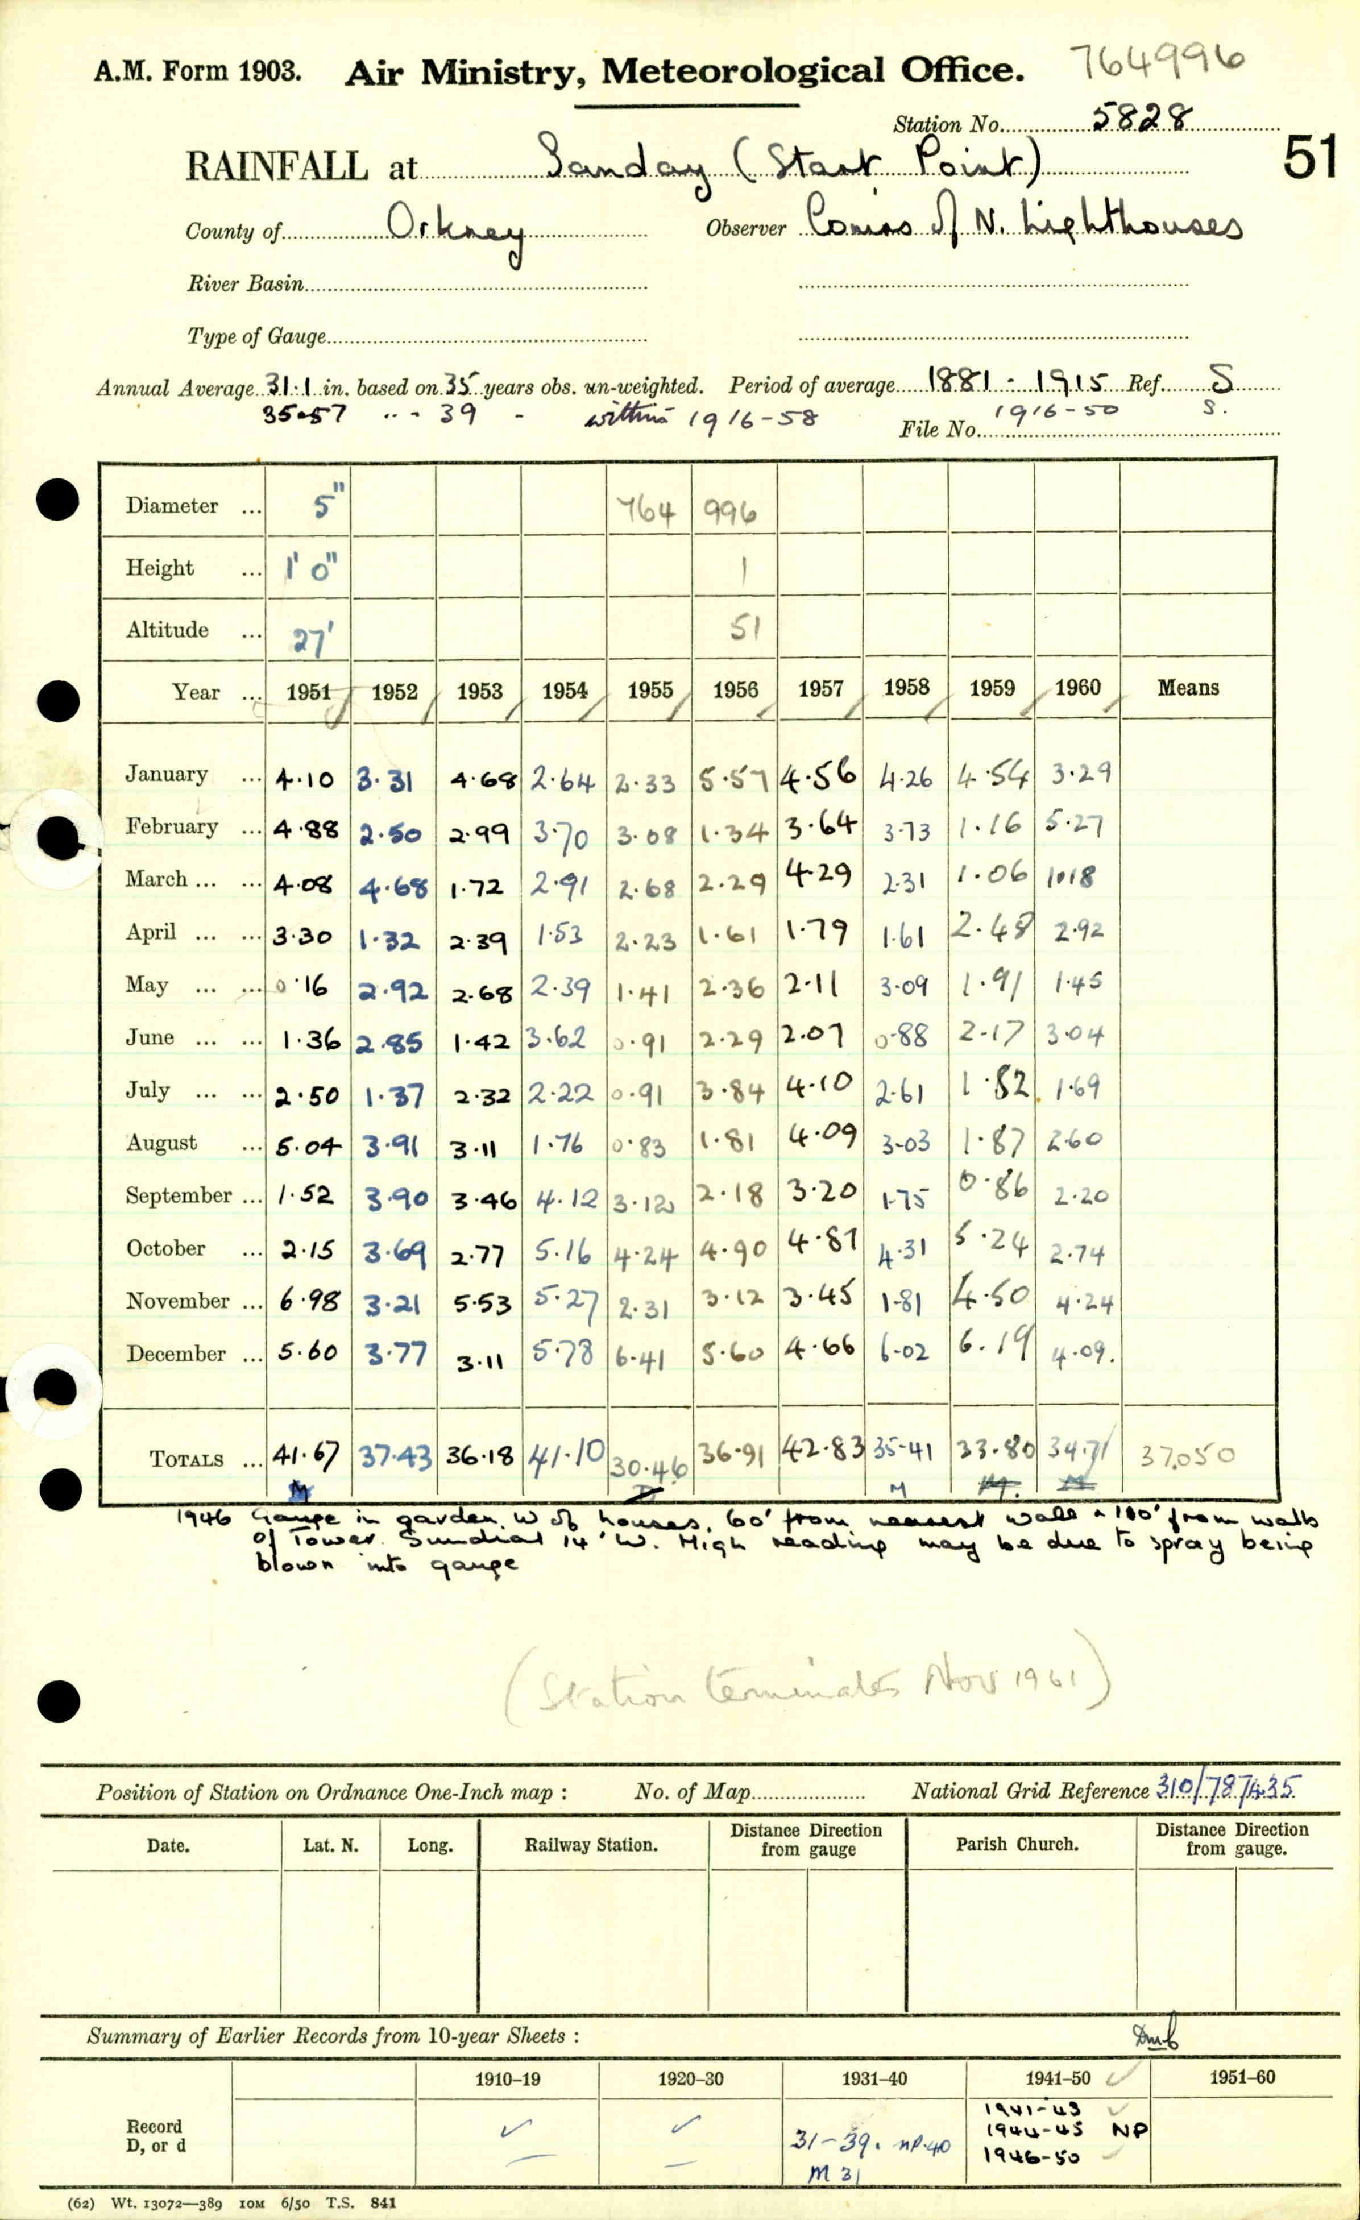 A.M. Form 1903. Air Ministry, Meteorological Office. 764996
Station No. 5828
RAINFALL at Sanday (Start Point) 51
County of Orkney Observer Comms of N. Lighthouses
River Basin
Type of Gauge
Annual Average 31.1 in. based on 35 years obs. un-weighted. Period of average 1881 - 1915 Ref. S
35.57 " - 39 - within 1916-58 1916-50 S.
File No.
Diameter ... 5" 764 996
Height ... 1' 0" 1
Altitude ... 27' 51
Year ... 1951 1952 1953 1954 1955 1956 1957 1958 1959 1960 Means
January ... 4.10 3.31 4.68 2.64 2.33 5.57 4.56 4.26 4.54 3.29
February ... 4.88 2.50 2.99 3.70 3.08 1.34 3.64 3.73 1.16 5.27
March ... ... 4.08 4.68 1.72 2.91 2.68 2.29 4.29 2.31 1.06 1.18
April ... ... 3.30 1.32 2.39 1.53 2.23 1.61 1.79 1.61 2.48 2.92
May ... ... 0.16 2.92 2.68 2.39 1.41 2.36 2.11 3.09 1.91 1.45
June ... ... 1.36 2.85 1.42 3.62 0.91 2.29 2.07 0.88 2.17 3.04
July ... ... 2.50 1.37 2.32 2.22 0.91 3.84 4.10 2.61 1.82 1.69
August ... 5.04 3.91 3.11 1.76 0.83 1.81 4.09 3.03 1.87 2.60
September ... 1.52 3.90 3.46 4.12 3.12 2.18 3.20 1.75 0.86 2.20
October ... 2.15 3.69 2.77 5.16 4.24 4.90 4.87 4.31 5.24 2.74
November ... 6.98 3.21 5.53 5.27 2.31 3.12 3.45 1.81 4.50 4.24
December ... 5.60 3.77 3.11 5.78 6.41 5.60 4.66 6.02 6.19 4.09.
TOTALS ... 41.67 37.43 36.18 41.10 30.46 36.91 42.83 35.41 33.80 34.71 37.050
M M M. M
1946 Gauge in garden W of houses, 60' from nearest wall & 100' from walls
of Tower. Sundial 14' W. High reading may be due to spray being
blown into gauge
(Station terminates Nov 1961)
Position of Station on Ordnance One-Inch map : No. of Map National Grid Reference 310/787435
Date. Lat. N. Long. Railway Station. Distance Direction from gauge Parish Church. Distance Direction from gauge.
Summary of Earlier Records from 10-year Sheets :
1910-19 1920-30 1931-40 1941-50 ✓ 1951-60
Record D, or d ✓ ✓ 31-39. NP.40 1941-43 ✓
1944-45 NP
M 31 1946-50 ✓
(62) Wt. 13072—389 IOM 6/50 T.S. 841